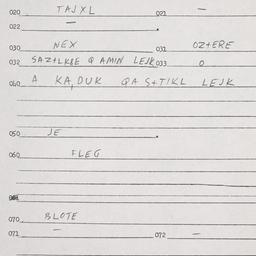 020 TAJXL 021 —
022 —
030 NEX 031 OZ+ERE
032 SAZ+LK&E Q AMIN LEJK 033 O
040 A KA,DUK QA S+TIKL LEJK
050 JE
060 FLEG
070 BLOTE
071 — 072 —